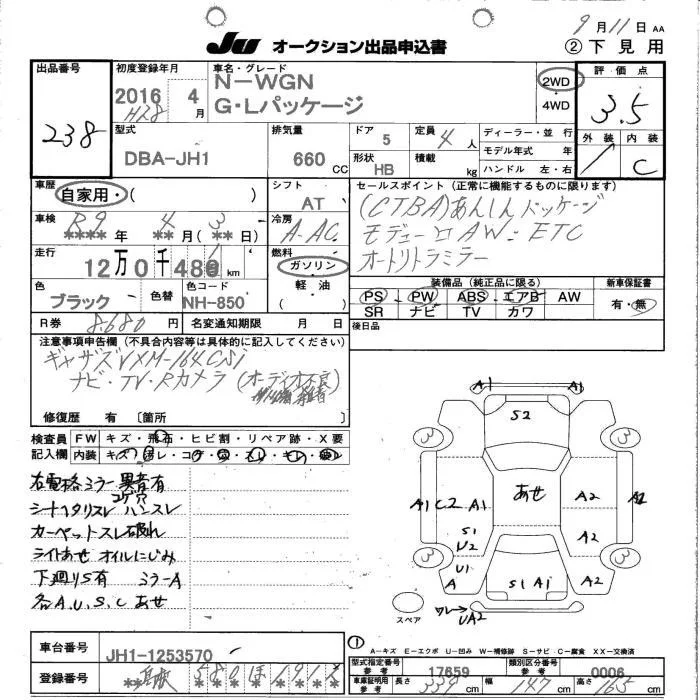 9月11日 AA
Ju オークション出品申込書
② 下見用
出品番号
238
初度登録年月
2016 4月
H28
車名・グレード
N-WGN
G・Lパッケージ
2WD
4WD
評価点
3.5
外装 内装
C
型式
DBA-JH1
排気量
660 CC
ドア 5
定員 4人
形状 HB
積載 kg
ディーラー・並行
モデル年式 年
ハンドル 左・右
車歴
自家用・( )
シフト
AT
セールスポイント(正常に機能するものに限ります)
(CTBA)あんしんパッケージ
モデューロAW・ETC
オートリトラミラー
車検
R9 4 3
**** 年 ** 月(** 日)
冷房
A-AC
走行
12万0千48 km
燃料
ガソリン
軽油
( )
色
ブラック
色替
色コード
NH-850
装備品(純正品に限る)
PS PW ABS エアB AW
SR ナビ TV カワ
新車保証書
有・無
R券 8,680円
名変通知期限 月 日
後日品
注意事項申告欄(不具合内容等は具体的に記入してください)
ギャザズVXM-164CSi
ナビ・TV・Rカメラ(オーディオ不良)
修復歴 有 〔箇所 〕
検査員記入欄
FW キズ・飛石・ヒビ割・リペア跡・X要
内装
右電格ミラー異音有
コゲ穴
シートヘタリスレ ハンスレ
カーペットスレ破れ
ライトあせ オイルにじみ
下廻りS有 ミラーA
各A.U.S.C あせ
A1 A1
S2
3 3
A1 C2 A1
あせ
A2
A2
S1
U2
A2
U1
3 3
A
S1 A1
A2
スペア
ワレ→
UA2
①
A-キズ E-エクボ U-凹み W-補修跡 S-サビ C-腐食 XX-交換済
車台番号
JH1-1253570
型式指定番号
17659
類別区分番号
0006
登録番号
580 ほ
車庫証明用
長さ 339 cm
幅 147 cm
高さ 165 cm